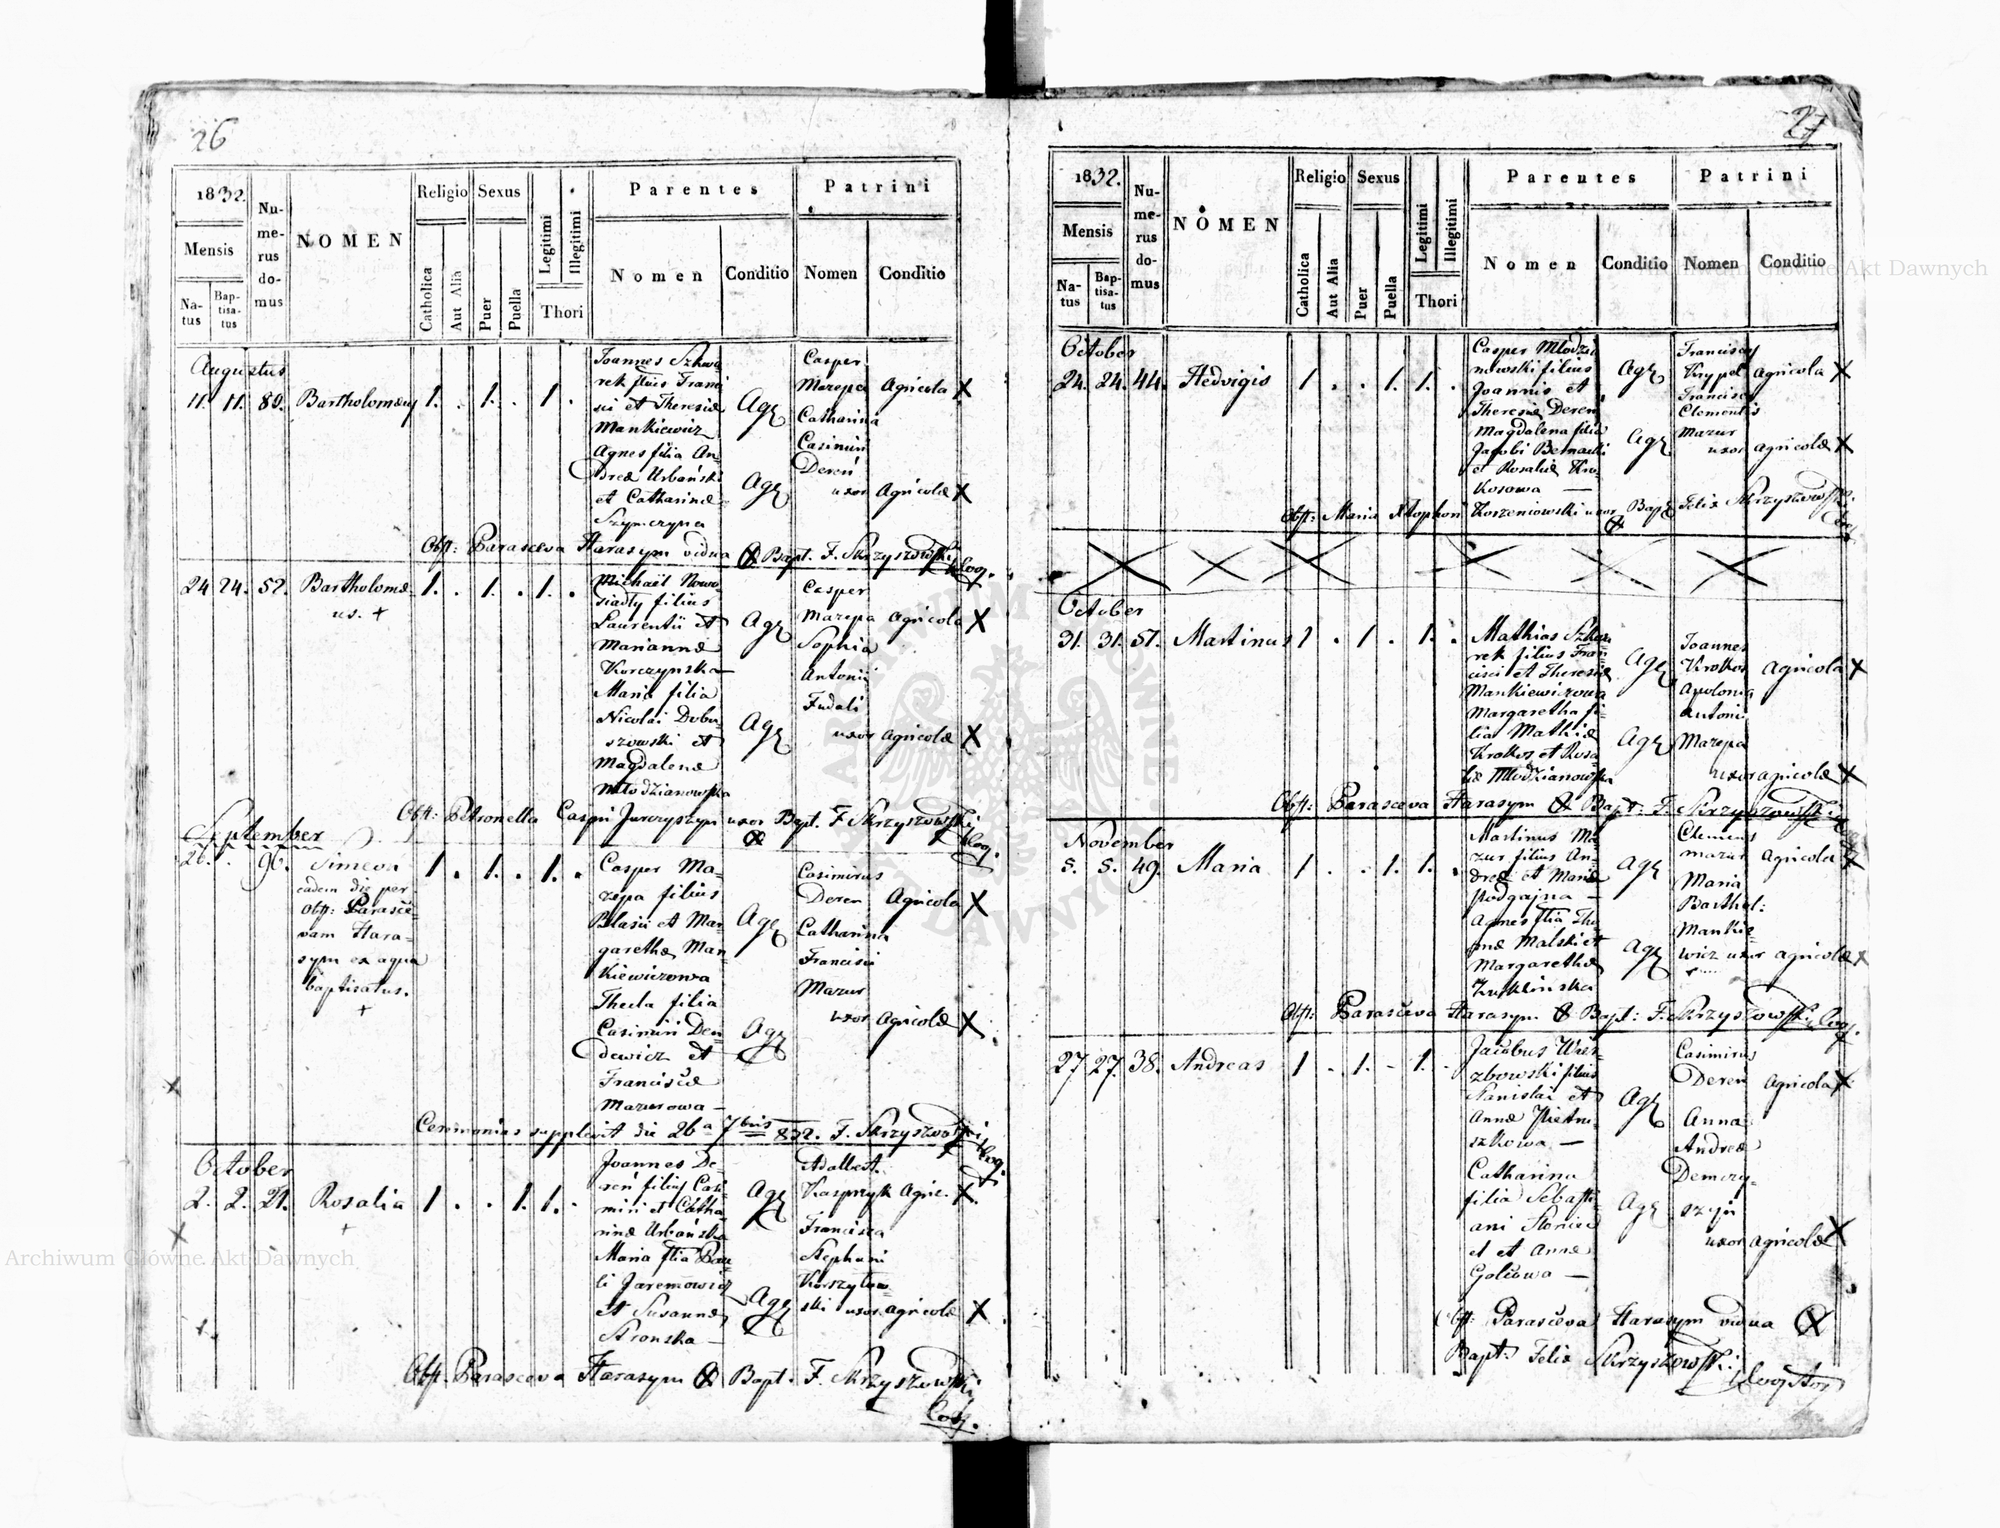 26
1832.
Mensis
Na-
tus
Bap-
tisa-
tus
Nu-
me-
rus
do-
mus
NOMEN
Religio
Catholica
Aut Alia
Sexus
Puer
Puella
Legitimi
Illegitimi
Thori
Parentes
Nomen
Conditio
Patrini
Nomen
Conditio
Augustus
11. 11. 80. Bartholomeus 1. . 1. . 1. .
Joannes Szkwa
rek filius Franci
sci et Theresiæ
Mankiewicz
Agnes filia An-
dreæ Urbański
et Catharinæ
Szymczyna
Agr
Agr
Casper
Mazepa Agricola X
Catharina
Casimiri
Dereń
uxor Agricolæ X
Obst: Parasceva Harasym vidua X Bapt. F. Skrzyszowski
Coop.
24 24. 52. Bartholomæ-
us. +
1. . 1. . 1. .
Michael Nowo
siadly filius
Laurentii et
Mariannæ
Korczynska
Maria filia
Nicolai Dobu-
szowski et
Magdalenæ
Młodzianowska
Agr
Agr
Casper
Mazepa Agricola X
Sophia
Antonii
Fudali
uxor Agricolæ X
Obst: Petronella Caspri Jurczyszyn uxor Bapt. F. Skrzyszowski
Coop.
September
26. . 96. Simeon
eadem die per
Obst: Parasce-
vam Hara-
sym ex aqua
baptisatus.
+
1. . 1. . 1. .
Casper Ma-
zepa filius
Blasii et Mar-
garethæ Man-
kiewiczowa
Thecla filia
Casimiri Den-
dewicz et
Franciscæ
Mazurowa
Agr
Agr
Casimirus
Deren Agricola X
Catharina
Francisci
Mazur
uxor Agricolæ X
Ceremonias supplevit die 26a 7bris 832. F. Skrzyszowski
Coop.
October
2. 2. 21. Rosalia 1. . . 1. 1. .
Joannes De-
reń filius Casi-
miri et Catha-
rinæ Urbańska
Maria filia Pau-
li Jaremowicz
et Susannæ
Stronska
Agr
Agr
Adalbert.
Kasprzyk Agric. X
Francisca
Stephani
Korszyłow-
ski uxor agricolæ X
Obst. Parasceva Harasym X Bapt. F. Skrzyszowski
Coop.
27
1832.
Mensis
Na-
tus
Bap-
tisa-
tus
Nu-
me-
rus
do-
mus
NOMEN
Religio
Catholica
Aut Alia
Sexus
Puer
Puella
Legitimi
Illegitimi
Thori
Parentes
Nomen
Conditio
Patrini
Nomen
Conditio
October
24. 24. 44. Hedvigis 1 . . 1. 1. .
Casper Mlodzia
nowski filius
Joannis et
Theresiæ Deren
Magdalena filia
Jacobi Bernacki
et Rosaliæ Kro-
kosowa
Agr
Agr
Franciscus
Krypel Agricola X
Francisca
Clementis
Mazur
uxor agricolæ X
Obst: Maria Korzeniowski uxor Bapt Felix Skrzyszowski
Coop.
October
31. 31. 57. Martinus 1 . 1 . 1. .
Mathias Szkwa
rek filius Fran-
cisci et Theresiæ
Mankiewiczowa
Margaretha fi-
lia Mathiæ
Krokos et Rosa
liæ Młodzianowska
Agr
Agr
Joannes
Krokos Agricola X
Apolonia
Antonii
Mazepa
uxor agricolæ X
Obst: Parasceva Harasym X Bapt: F. Skrzyszowski
November
5. 5. 49. Maria 1 . . 1. 1. .
Martinus Ma-
zur filius An-
dreæ et Mariæ
Podgajna
Agnes filia Tho
mæ Malski et
Margarethæ
Agr
Agr
Clemens
Mazur Agricola X
Maria
Barthol:
Mankie-
wicz uxor agricolæ X
Obst: Parasceva Harasym X Bapt: F. Skrzyszowski Coop.
27 27. 38. Andreas 1 . 1. . 1. .
Jacobus Wierz-
zbowski filius
Stanislai et
Annæ Pietru-
szkowa
Catharina
filia Sebasti-
ani
et Annæ
Golcowa
Agr
Agr
Casimirus
Deren Agricola X
Anna
Andreæ
Demczy-
szyn
uxor agricolæ X
Obst: Parasceva Harasym vidua X
Bapt: Felix Skrzyszowski
Coopstor
Archiwum Główne Akt Dawnych
Archiwum Główne Akt Dawnych
ARCHIWUM GŁÓWNE AKT DAWNYCH